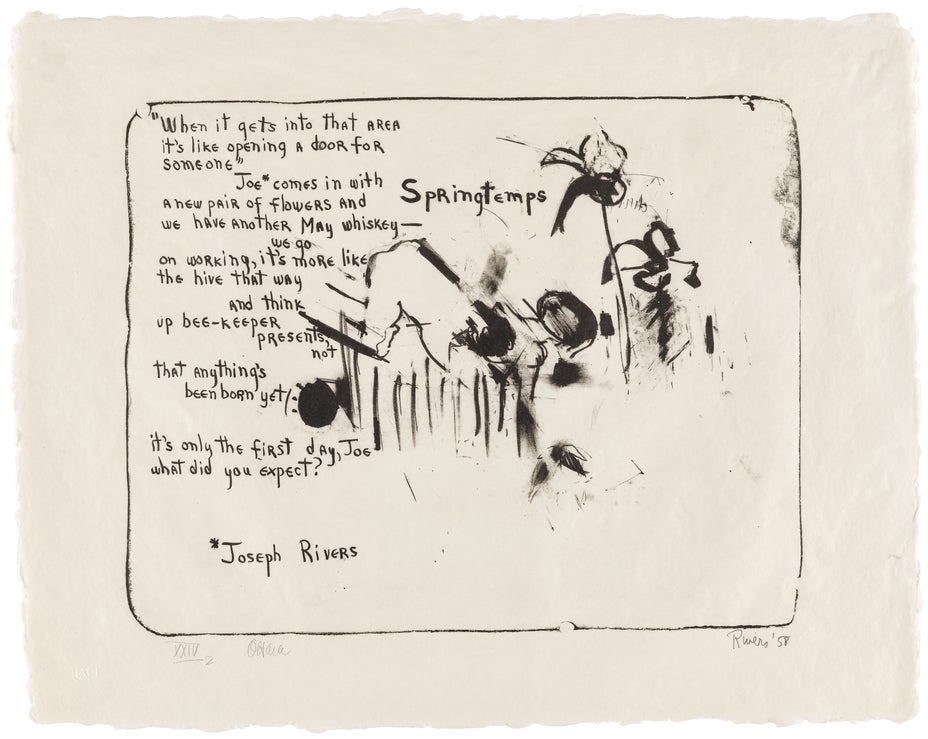 "When it gets into that area
it's like opening a door for
someone"
Joe* comes in with
a new pair of flowers and
we have another May whiskey—
we go
on working, it's more like
the hive that way
and think
up bee-keeper
presents,
not
that anything's
been born yet/:
it's only the first day, Joe
what did you expect?
Springtemps
*Joseph Rivers
XXIV
2
Rivers '58